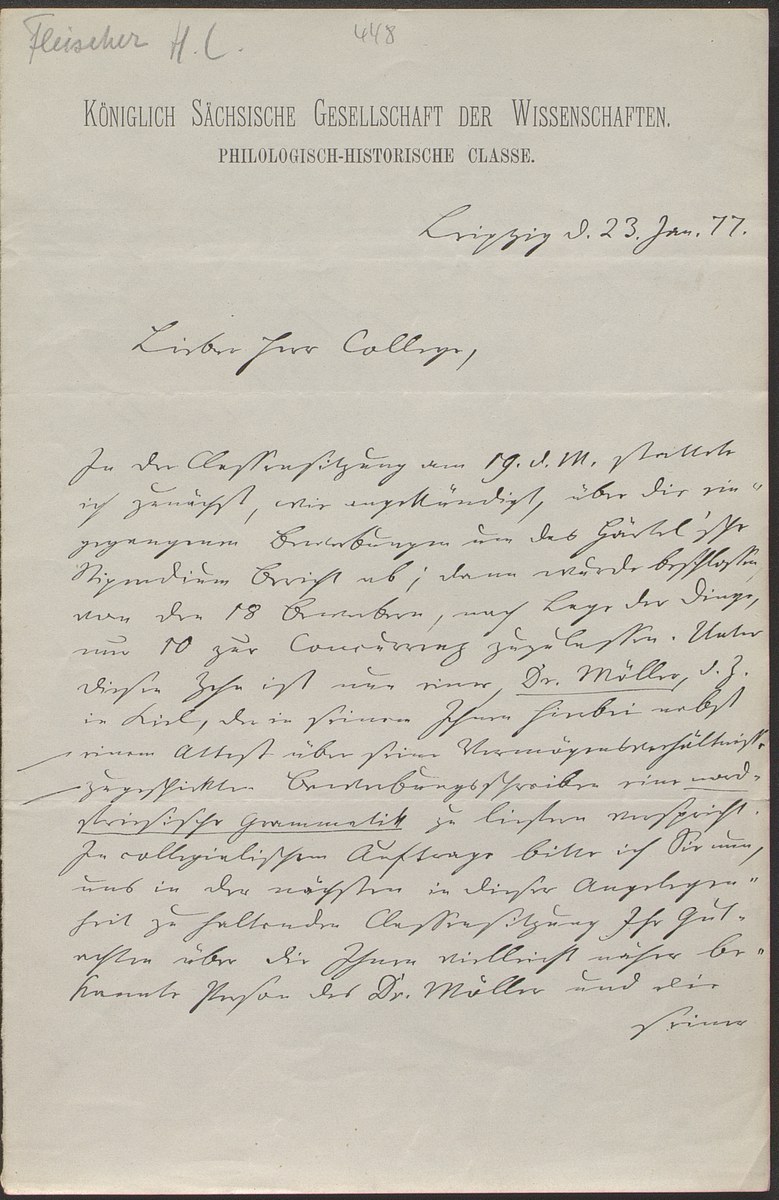 Fleischer H. L.
448
KÖNIGLICH SÄCHSISCHE GESELLSCHAFT DER WISSENSCHAFTEN.
PHILOLOGISCH-HISTORISCHE CLASSE.
Leipzig d. 23. Jan. 77.
Lieber Herr College,
In der Classensitzung am 19. d. M. stattete
ich zunächst, wie angekündigt, über die ein-
gegangenen Bewerbungen um das Härtel'sche
Stipendium Bericht ab; dann wurde beschlossen,
von den 18 Bewerbern, nach Lage der Dinge,
nur 10 zur Concurrenz zuzulassen. Unter
diesen Zehn ist nun einer, Dr. Möller, d. Z.
in Kiel, der in seinem Ihnen hiebei nebst
einem Attest über seine Vermögensverhältnisse
zugeschickten Bewerbungsschreiben eine nord-
friesische Grammatik zu liefern verspricht.
In collegialischem Auftrage bitte ich Sie nun,
uns in der nächsten in dieser Angelegen-
heit zu haltenden Classensitzung Ihr Gut-
achten über die Ihnen vielleicht näher be-
kannte Person des Dr. Möller und die
seiner